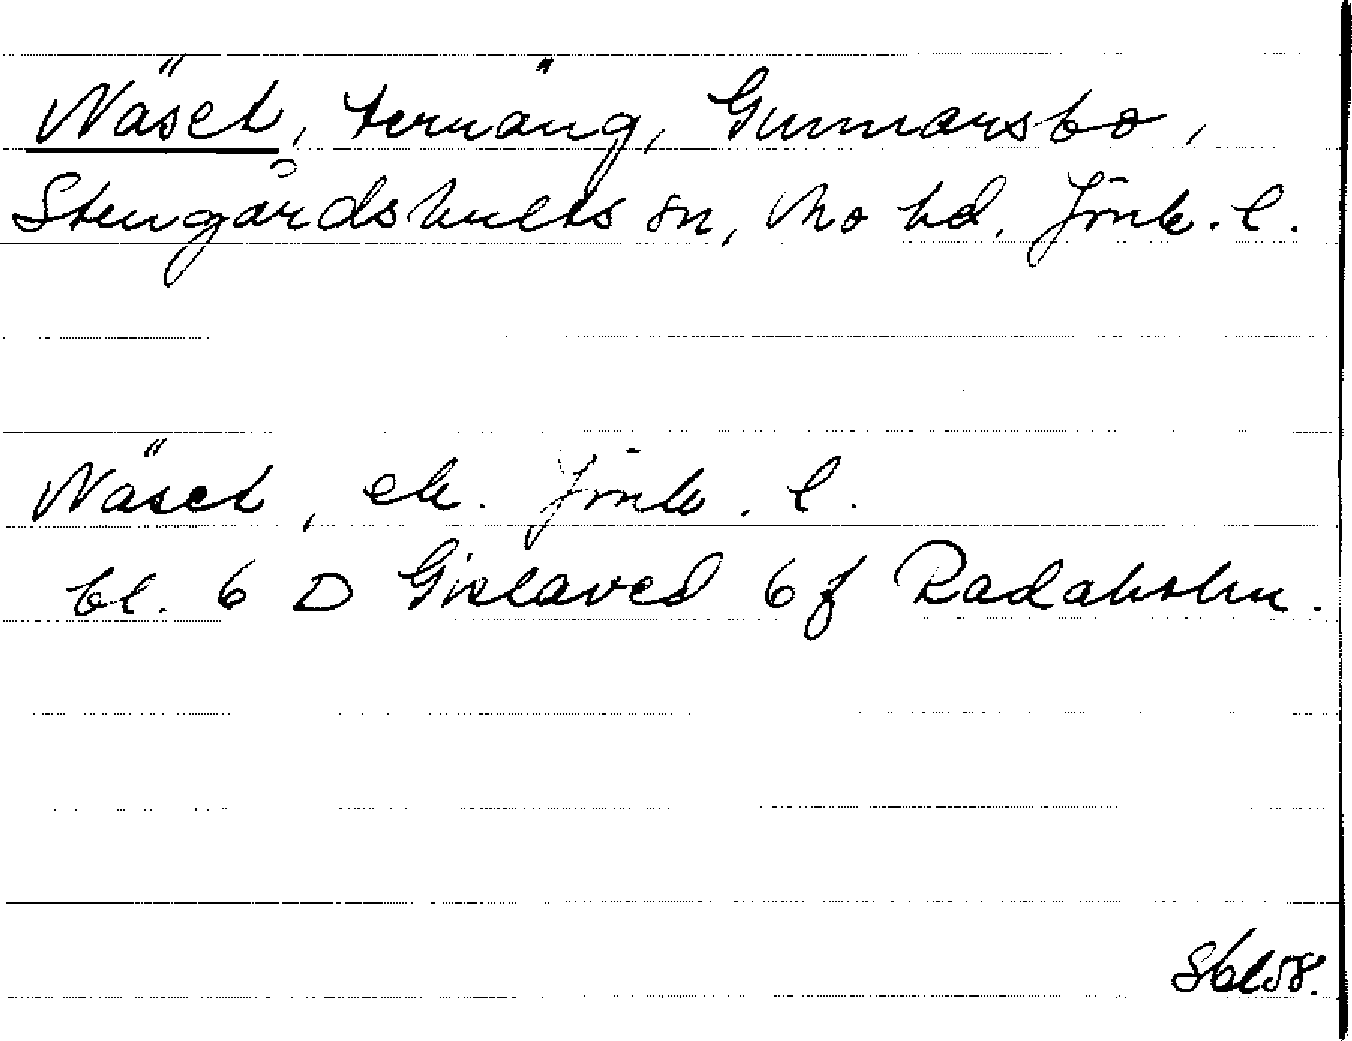 Näset, terräng, Gunnarsbo,
Stengårdshults sn, Mo hd. Jönk. l.
Näset, ek. Jönk. l.
bl. 6 D Gislaved 6 f Radaholm.